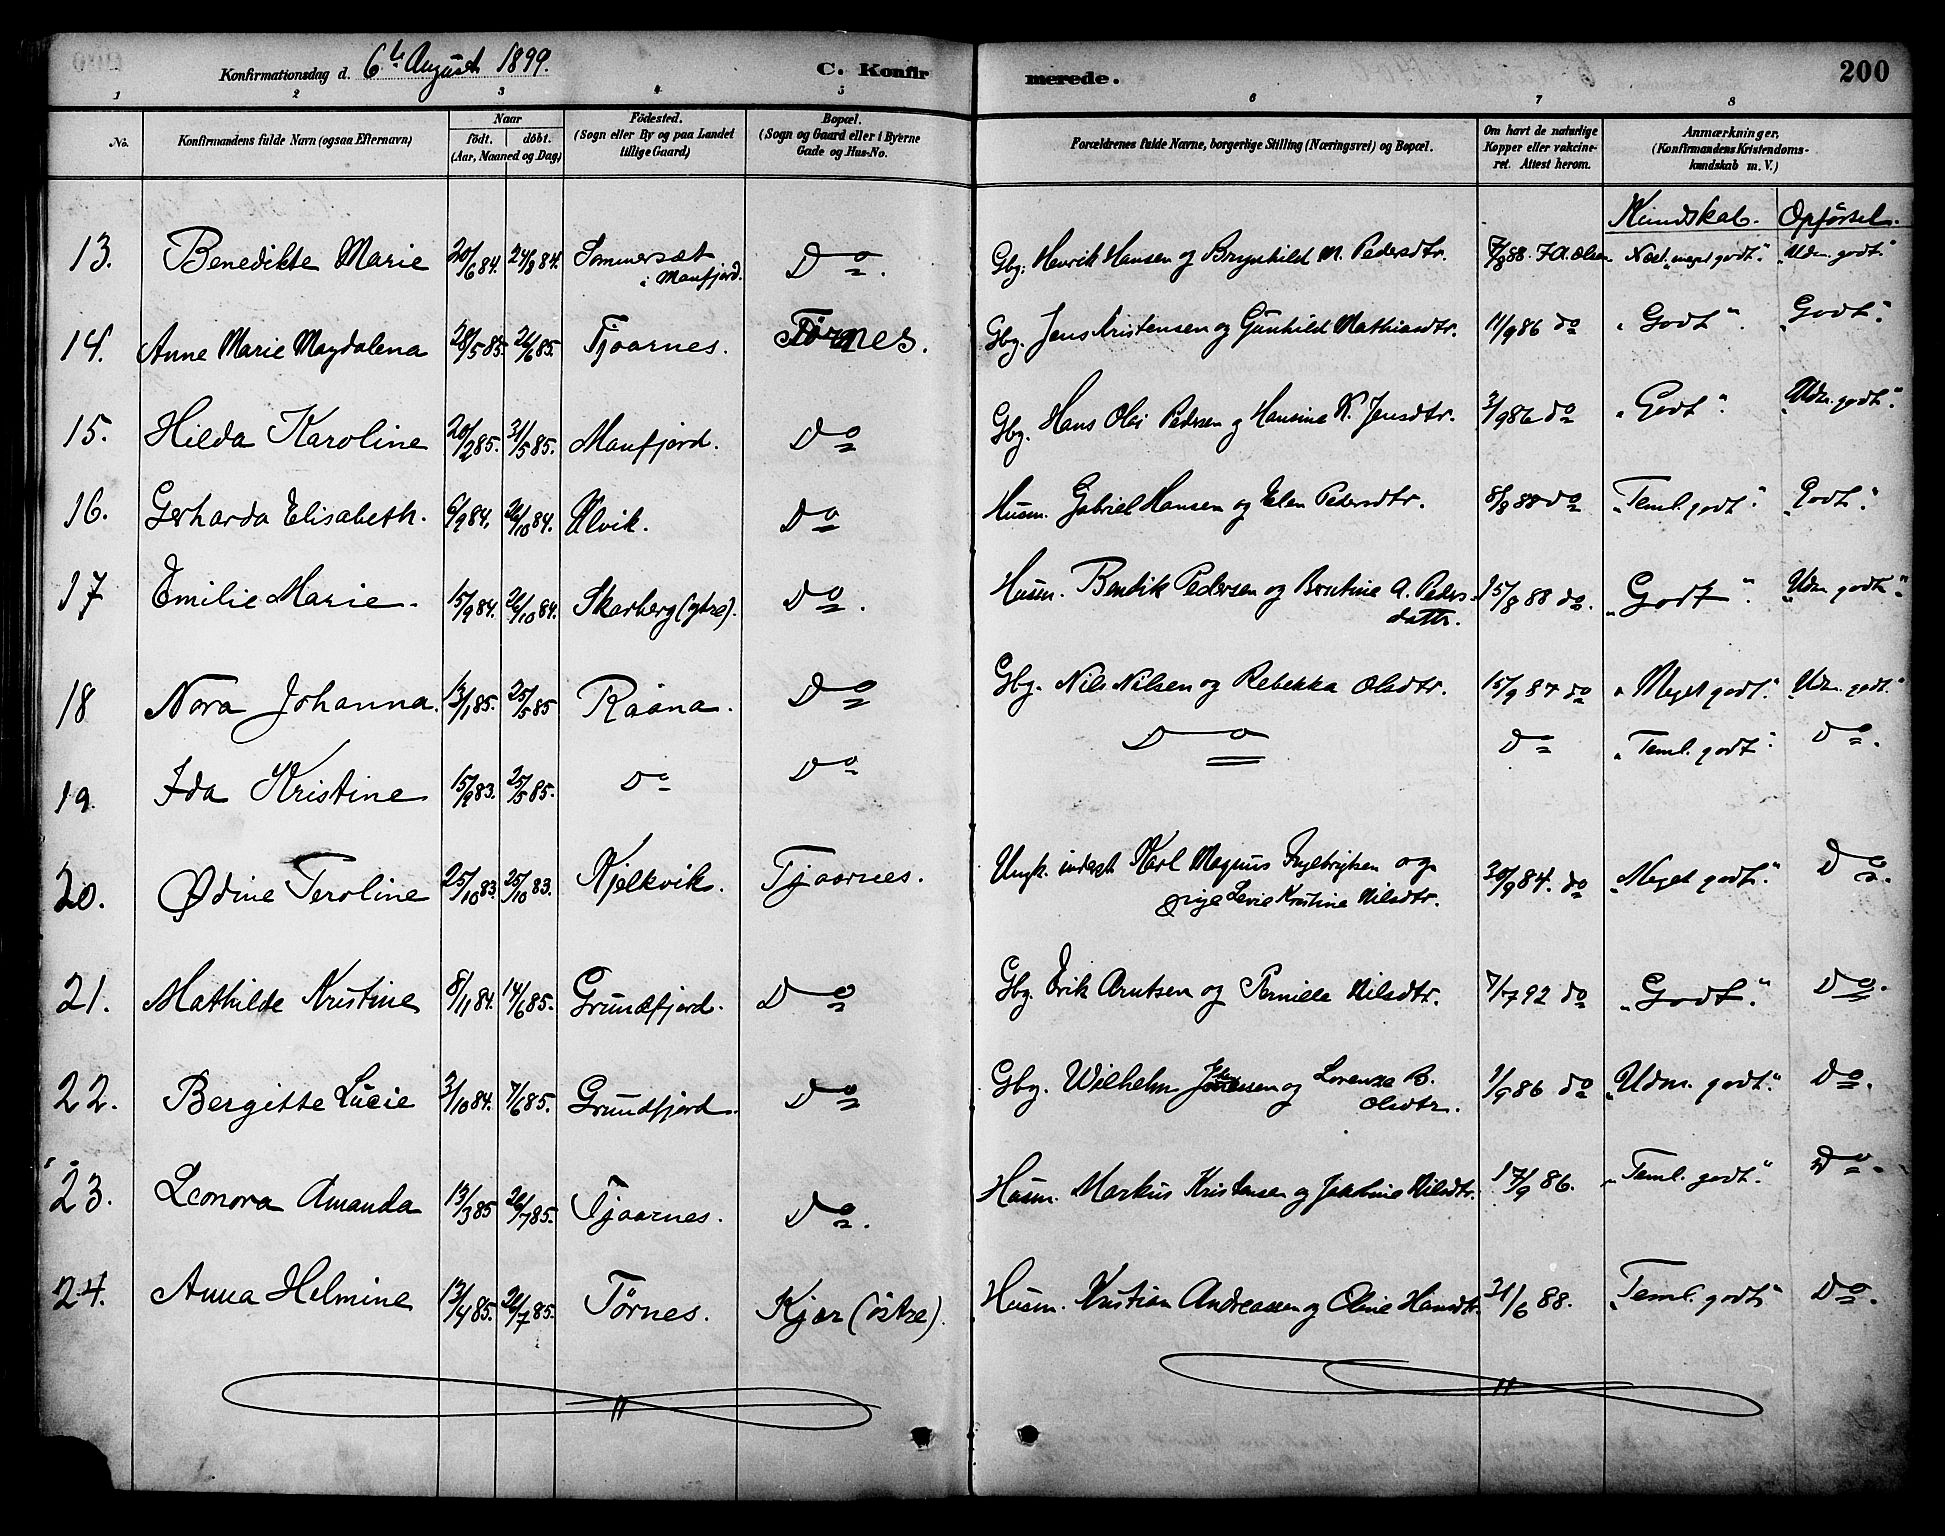 Konfirmationsdag d. 6te August 1899. C. Konfirmerede. 200
1 2 3 4 5 6 7 8
No. Konfirmandens fulde Navn (ogsaa Efternavn) Naar født. døbt. (Aar, Maaned og Dag) Fødested. (Sogn eller By og paa Landet tillige Gaard) Bopæl. (Sogn og Gaard eller i Byerne Gade og Hus-No. Forældrenes fulde Navne, borgerlige Stilling (Næringsvei) og Bopæl. Om havt de naturlige Kopper eller vakcineret. Attest herom. Anmærkninger, (Konfirmandens Kristendomskundskab m. V.)
Kundskab. Opførsel.
13. Benedikte Marie 20/6 84. 24/8 84. Sommersæt i Maufjord. Do. Gbg. Henrik Hansen og Brynhild M. Pedersdtr. 7/8 88. F A. Olsen Næst "meget godt". "Udm. godt".
14. Anne Marie Magdalena 28/5 85. 26/6 85. Tjaarnes. Tørnes. Gbg. Jens Kristensen og Gunhild Mathiasdtr. 11/9 86 do "Godt". "Godt".
15. Hilda Karoline 20/2 85. 31/5 85. Maufjord. Do Gbg. Hans Olai Pedersen og Hansine K. Jensdtr. 3/9 86 do "Godt". "Udm. godt".
16. Gerharda Elisabeth. 6/9 84. 26/10 84. Ulvik. Do Husm. Gabriel Hansen og Elen Pedersdtr. 8/8 88 do "Teml. godt". "Godt".
17 Emilie Marie. 15/9 84. 26/10 84. Skarberg (ytre). Do. Husm. Bendik Pedersen og Berntine A. Pedersdattr. 15/8 88 do. "Godt". "Udm. godt".
18 Nora Johanna. 13/1 85. 25/5 85 Raana. Do Gbg. Nils Nilsen og Rebekka Olsdtr. 15/9 87 do "Meget godt". "Udm. godt".
19. Ida Kristine 15/9 83. 25/5 85. Do Do Do Do "Teml. godt". Do.
20. Ødine Teroline 25/10 83. 25/10 83. Kjelkvik. Tjaarnes. Ungk. inderst Karl Magnus Ingebrigtsen og pige Levie Kristine Nilsdtr. 30/9 84. do "Meget godt". Do.
21. Mathilde Kristine 8/11 84. 14/6 85. Grundfjord. Do Gbg. Erik Arntsen og Pernille Nilsdtr. 7/7 92 do "Godt". Do.
22. Bergitte Lucie 3/10 84. 7/6 85. Grundfjord. Do Gbg. Wilhelm Johansen og Lorenza B. Olsdtr. 1/9 86 do "Udm. godt". Do.
23. Leonora Amanda 13/3 85 26/7 85. Tjaarnes. Do. Husm. Markus Kristensen og Jakobine Nilsdtr. 17/9 86. "Teml. godt". Do.
24. Anna Helmine 13/4 85. 26/7 85. Tørnes. Kjær (østre). Husm. Kristian Andreassen og Oline Hansdtr. 21/6 88. "Teml. godt" Do.